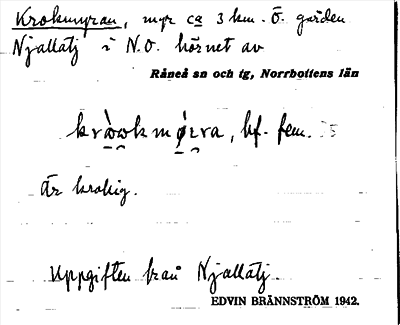 Krokmyran, myr ca 3 km. Ö. gården
Njallatj i N.O. hörnet av
Råneå sn och tg, Norrbottens län
bf. fem.
Är krokig.
Uppgiften från Njallatj.
EDVIN BRÄNNSTRÖM 1942.